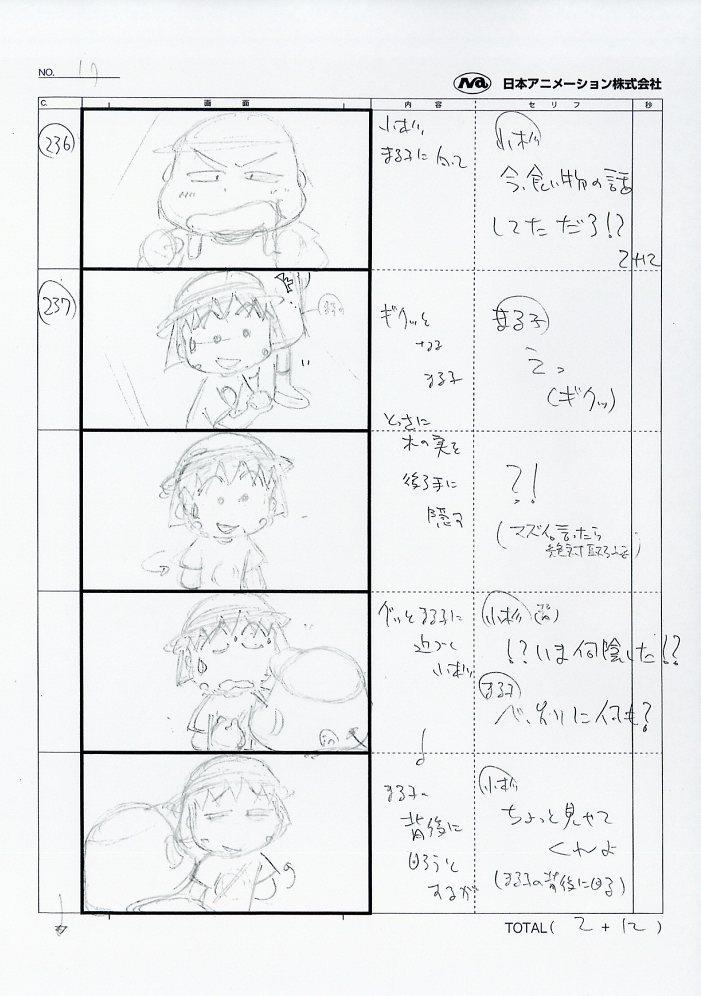 NO. 17
Na 日本アニメーション株式会社
C. 画面 内容 セリフ 秒
236
小杉、
まる子に向って
小杉
今、食い物の話
してただろ!?
2+12
237
ギクッと
なる
まる子
まる子
えっ
(ギクッ)
とっさに
木の実を
後ろ手に
隠す
?!
(マズイ、言ったら
絶対取られる)
グッとまる子に
近づく
小杉
小杉
!?いま何隠した!?
まる子
べ、別に何も?
まる子の
背後に
回ろうと
するが
小杉
ちょっと見せて
くれよ
(まる子の背後に回る)
TOTAL( 2 + 12 )